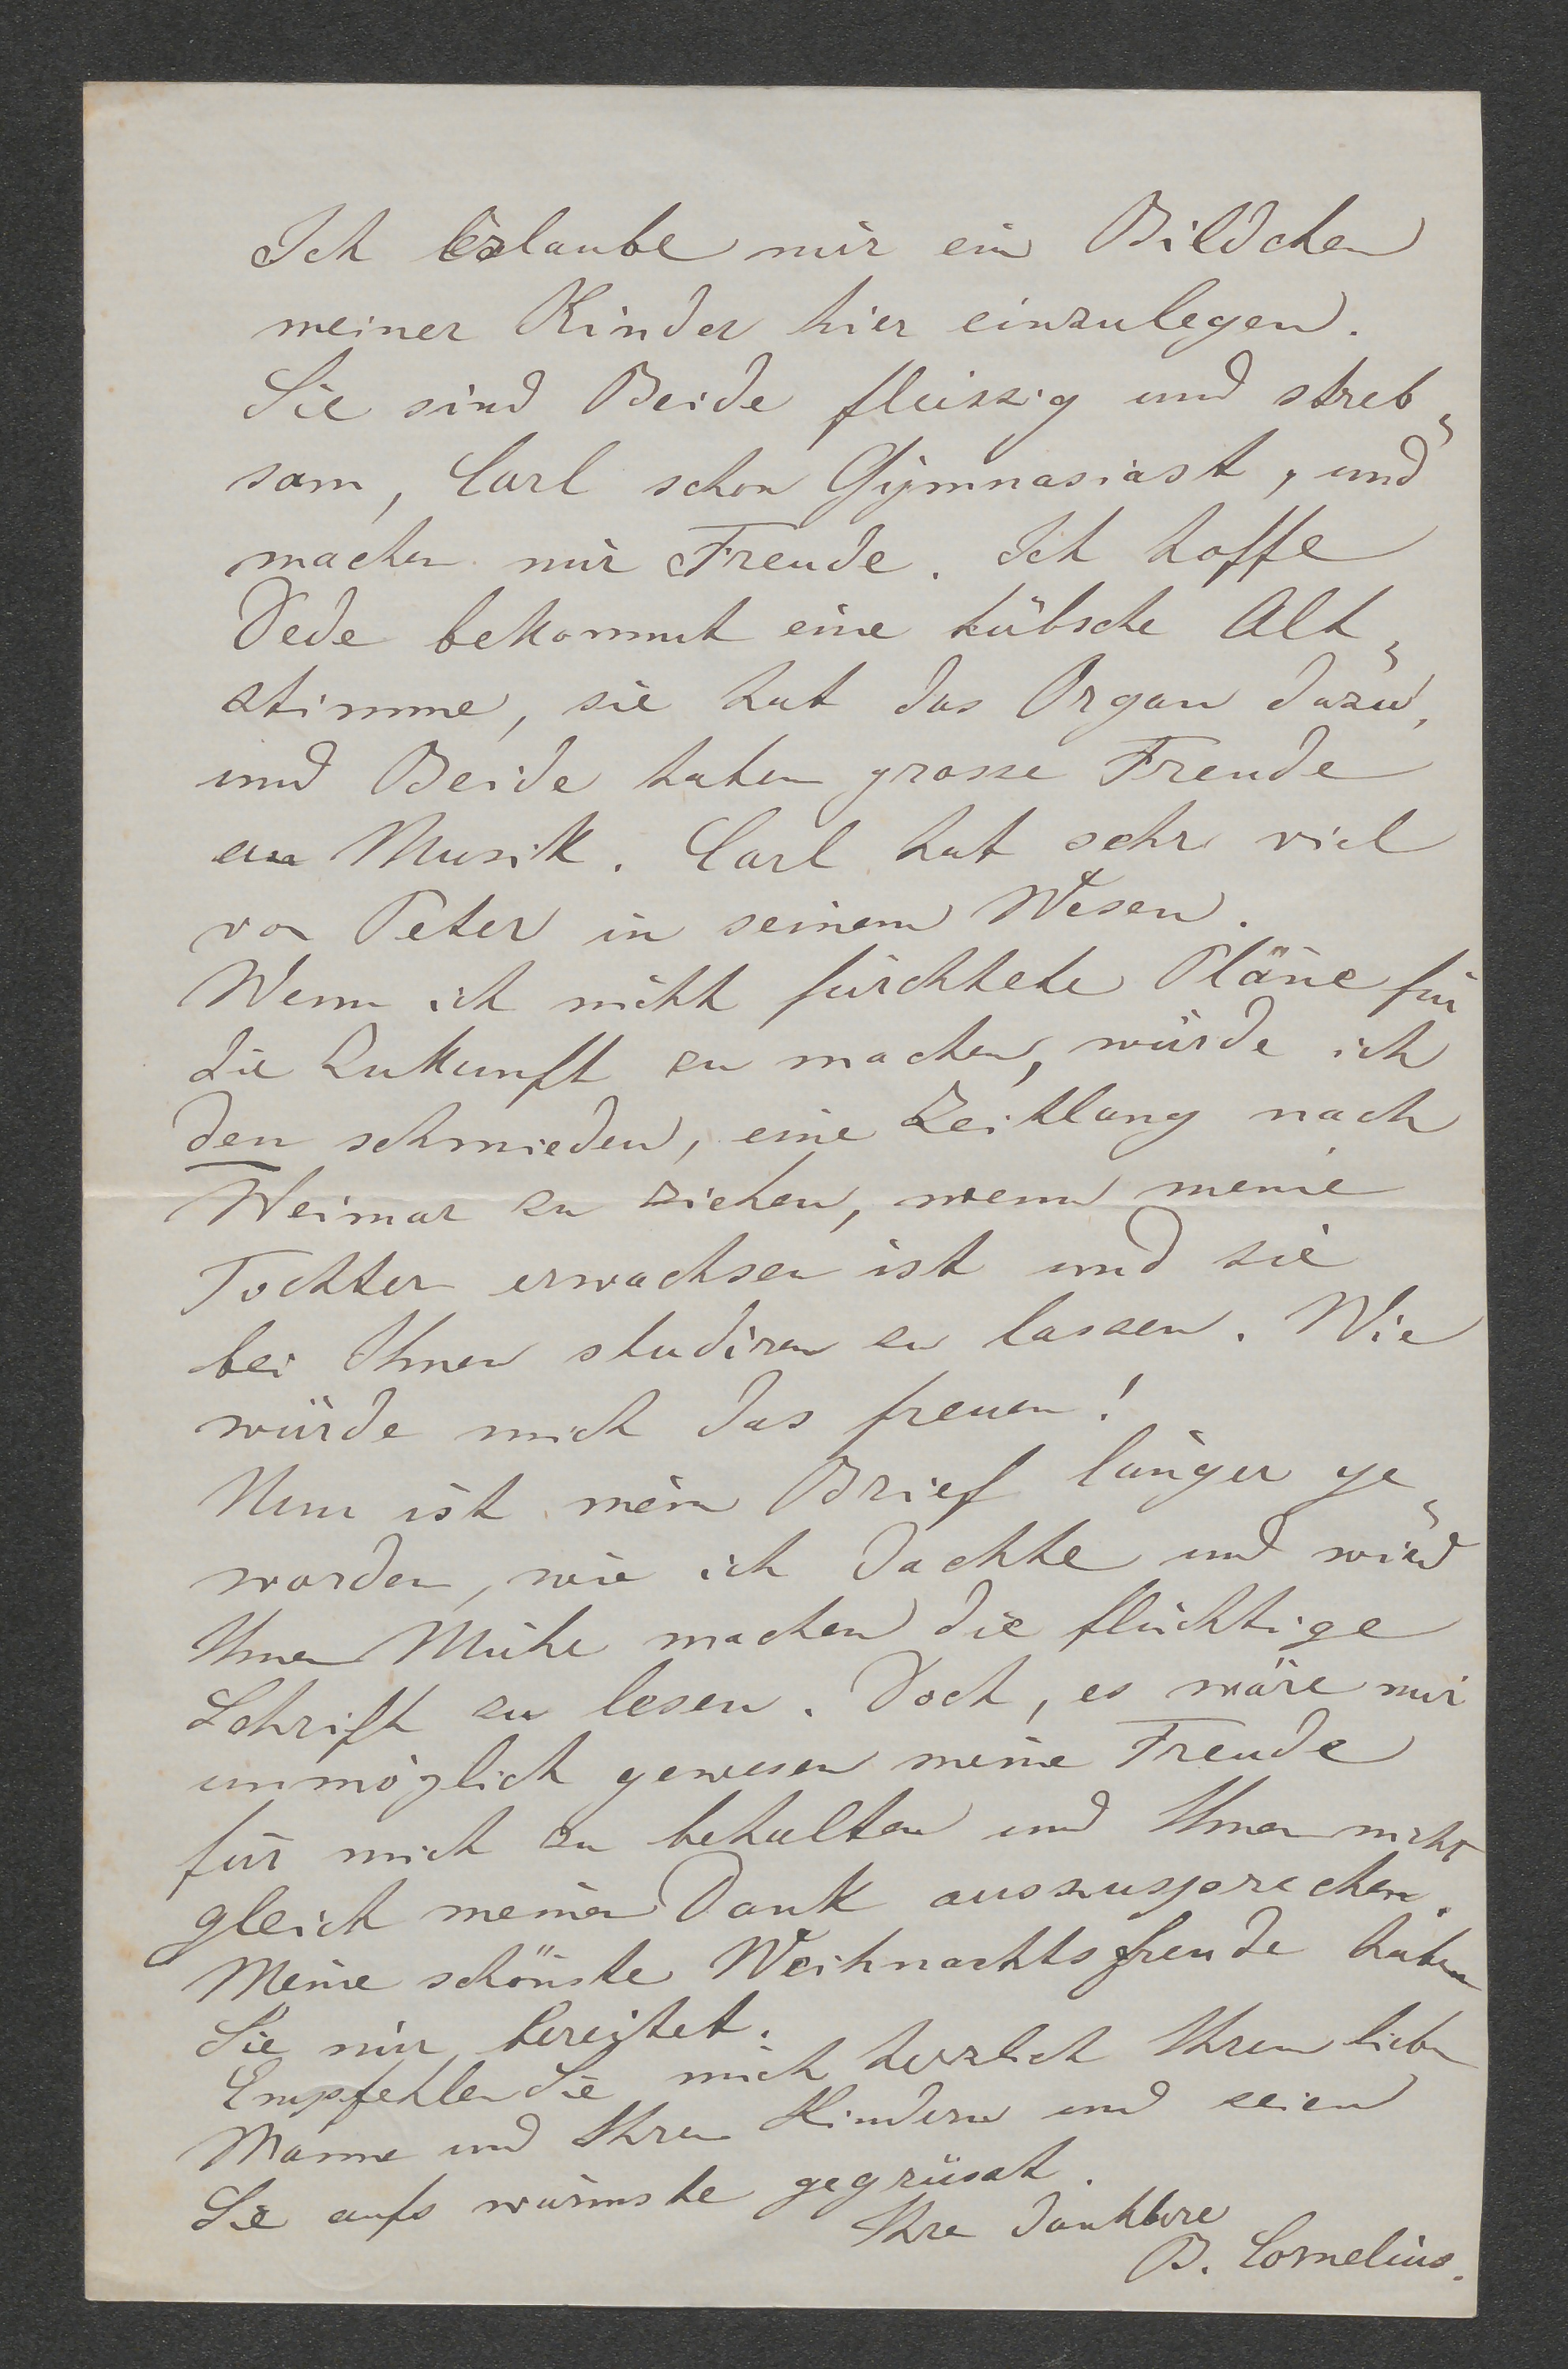 Ich erlaube mir ein Bildchen
meiner Kinder hier einzulegen.
Sie sind Beide fleissig und streb-
sam, Carl schon Gymnasiast, und
machen mir Freude. Ich hoffe
Dede bekommt eine hübsche Alt-
stimme, sie hat das Organ dazu,
und Beide haben grosse Freude
an Musik. Carl hat sehr viel
von Peter in seinem Wesen.
Wenn ich nicht fürchtete Pläne für
die Zukunft zu machen, würde ich
den schmieden, eine Zeitlang nach
Weimar zu ziehen, wenn meine
Tochter erwachsen ist und sie
bei Ihnen studiren zu lassen. Wie
würde mich das freuen!
Nun ist mein Brief länger ge-
worden, wie ich dachte und wird
Ihnen Mühe machen die flüchtige
Schrift zu lesen. Doch, es wäre mir
unmöglich gewesen meine Freude
für mich zu behalten und Ihnen nicht
gleich meinen Dank auszusprechen.
Meine schönste Weihnachtsfreude haben
Sie mir bereitet.
Empfehlen Sie mich herzlich Ihrem lieben
Manne und Ihren Kindern und seien
Sie aufs wärmste gegrüsst.
Ihre dankbare
B. Cornelius.